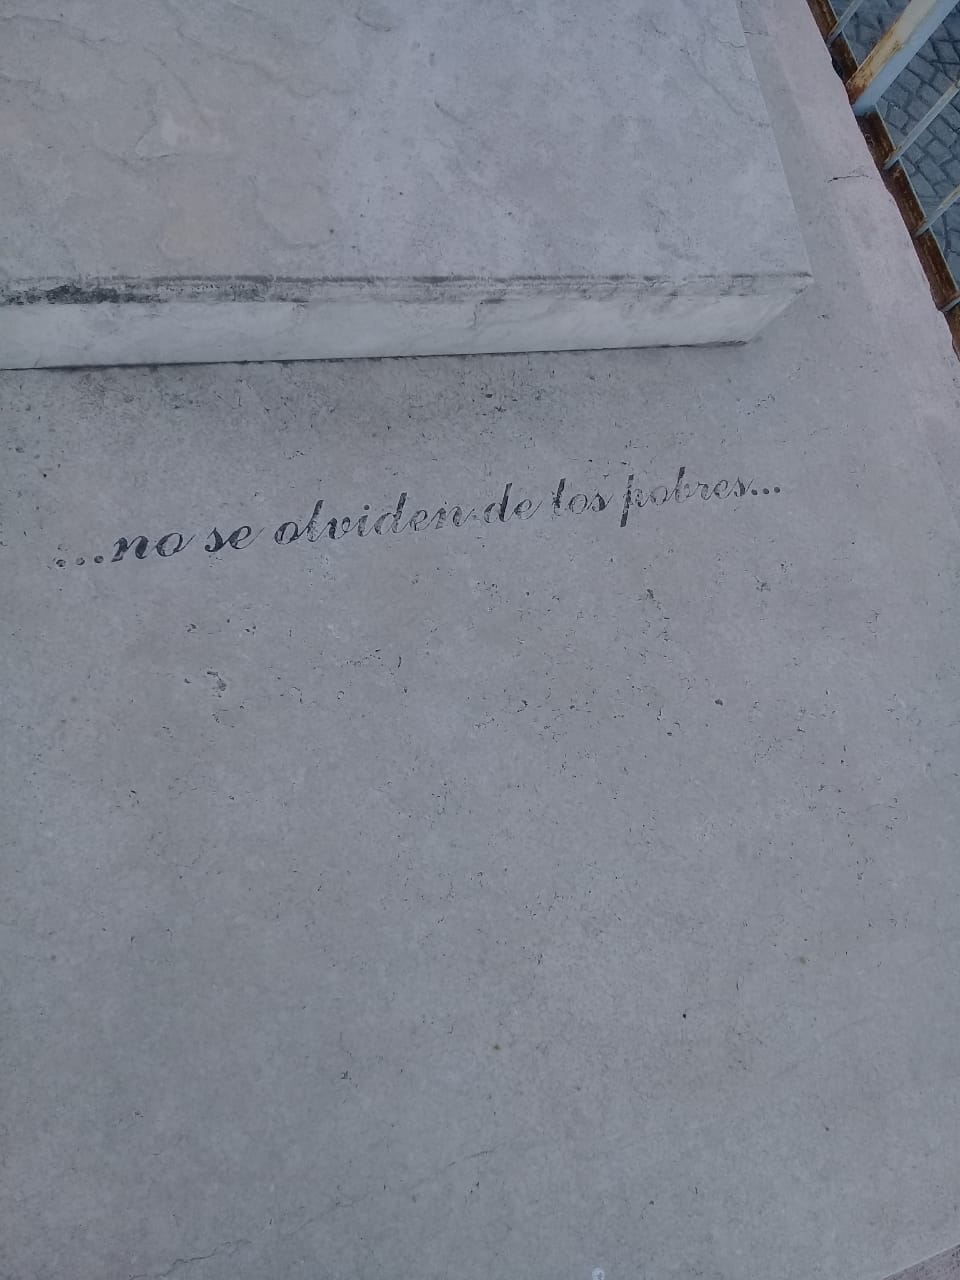 ...no se olviden de los pobres...